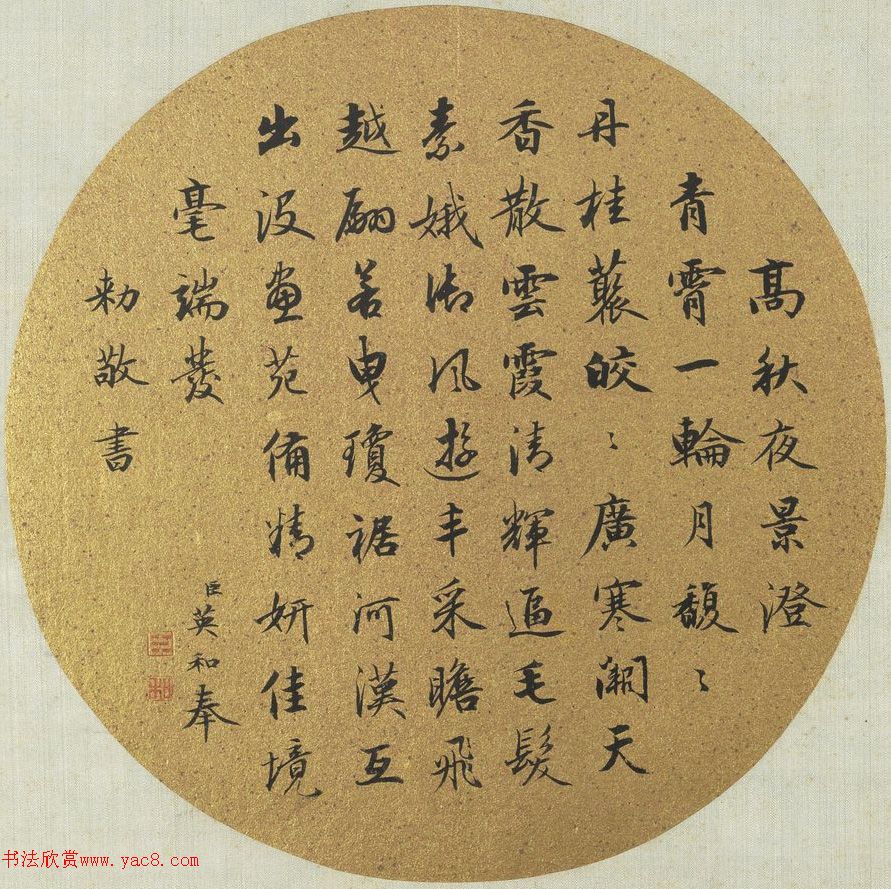 高秋夜景澄
青霄一輪月馥〻
丹桂蘂皎〻廣寒闕天
香散雲霞清輝逼毛髮
素娥御風遊丰采瞻飛
越翩若曳瓊裾河漢互
出沒畫苑備精妍佳境
毫端發
臣英和奉
勅敬書
书法欣赏www.yac8.com